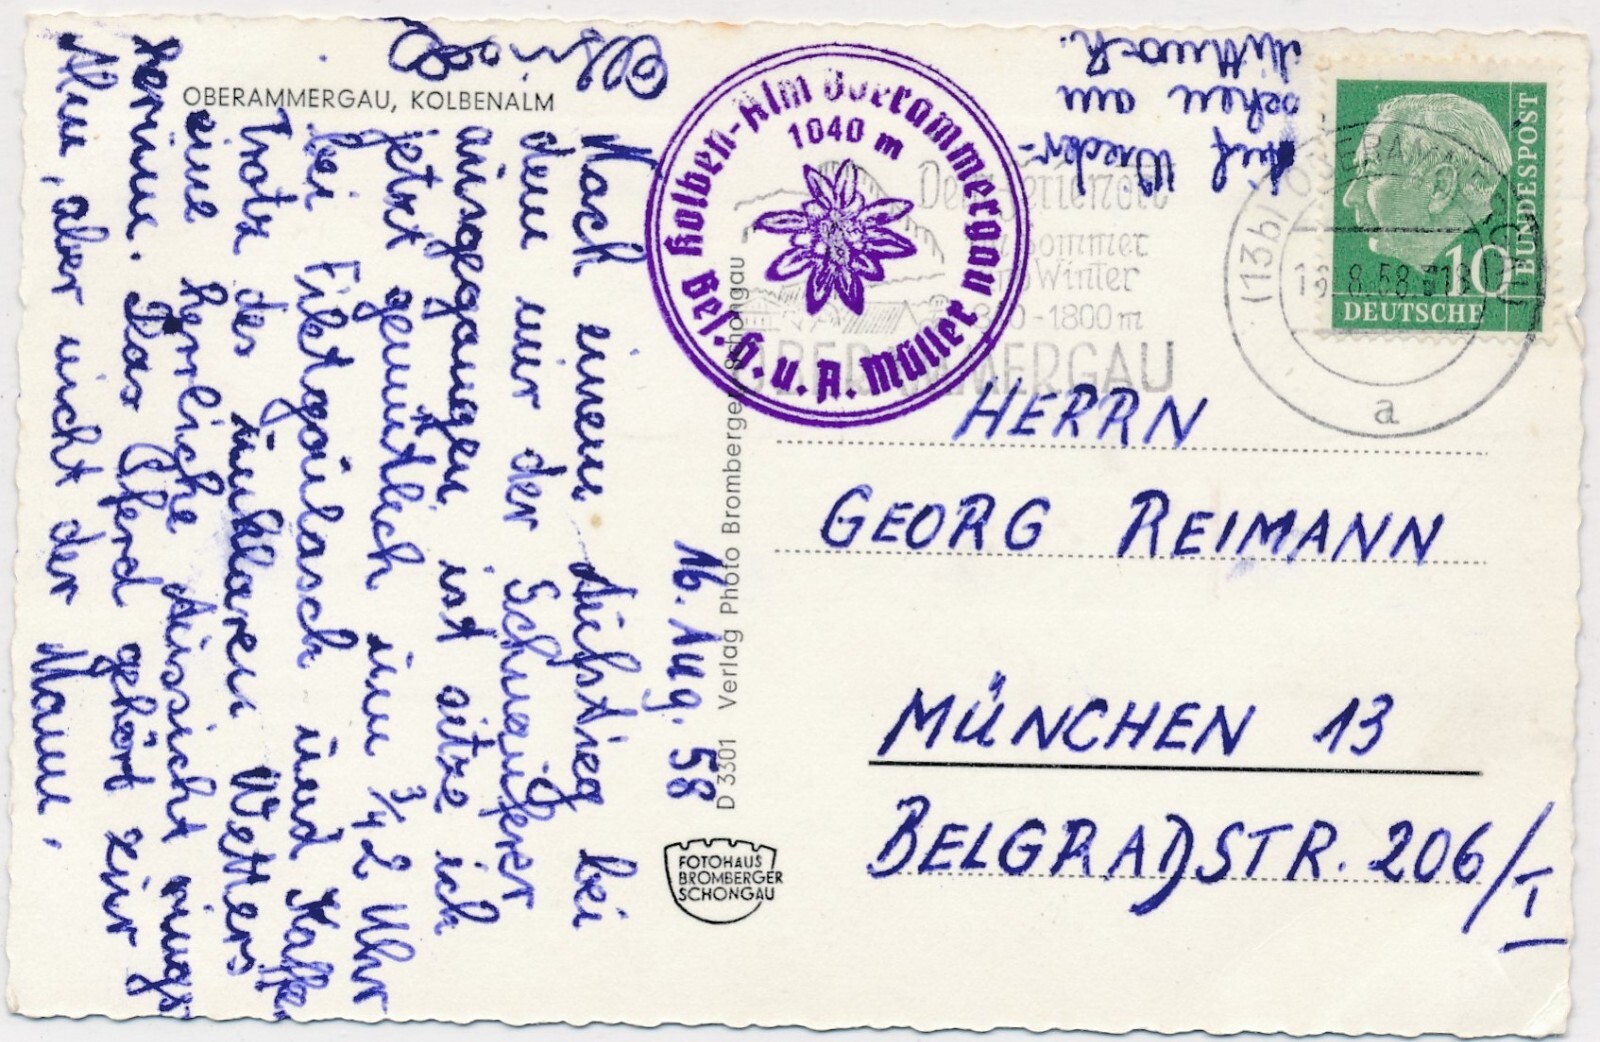 OBERAMMERGAU, KOLBENALM
16. Aug. 58
Nach einem Aufstieg bei
dem mir der Schnaufer
ausgegangen ist sitze ich
jetzt gemütlich um 3/4 2 Uhr
bei Filetgoulasch und Kaffee
Trotz des unklaren Wetters
eine herrliche Aussicht rings
herum. Das Pferd gehört zur
Alm, aber nicht der Mann.
Auf Wieder-
sehen am
Mittwoch.
D 3301 Verlag Photo Bromberger Schongau
FOTOHAUS
BROMBERGER
SCHONGAU
Kolben-Alm Oberammergau
1040 m
Bes. H. u. A. Müller
Sommer
Winter
-1800 m
OBERAMMERGAU
(13b) OBERAMMERGAU
8.58
a
10
DEUTSCHE
BUNDESPOST
HERRN
GEORG REIMANN
MÜNCHEN 13
BELGRADSTR. 206/I